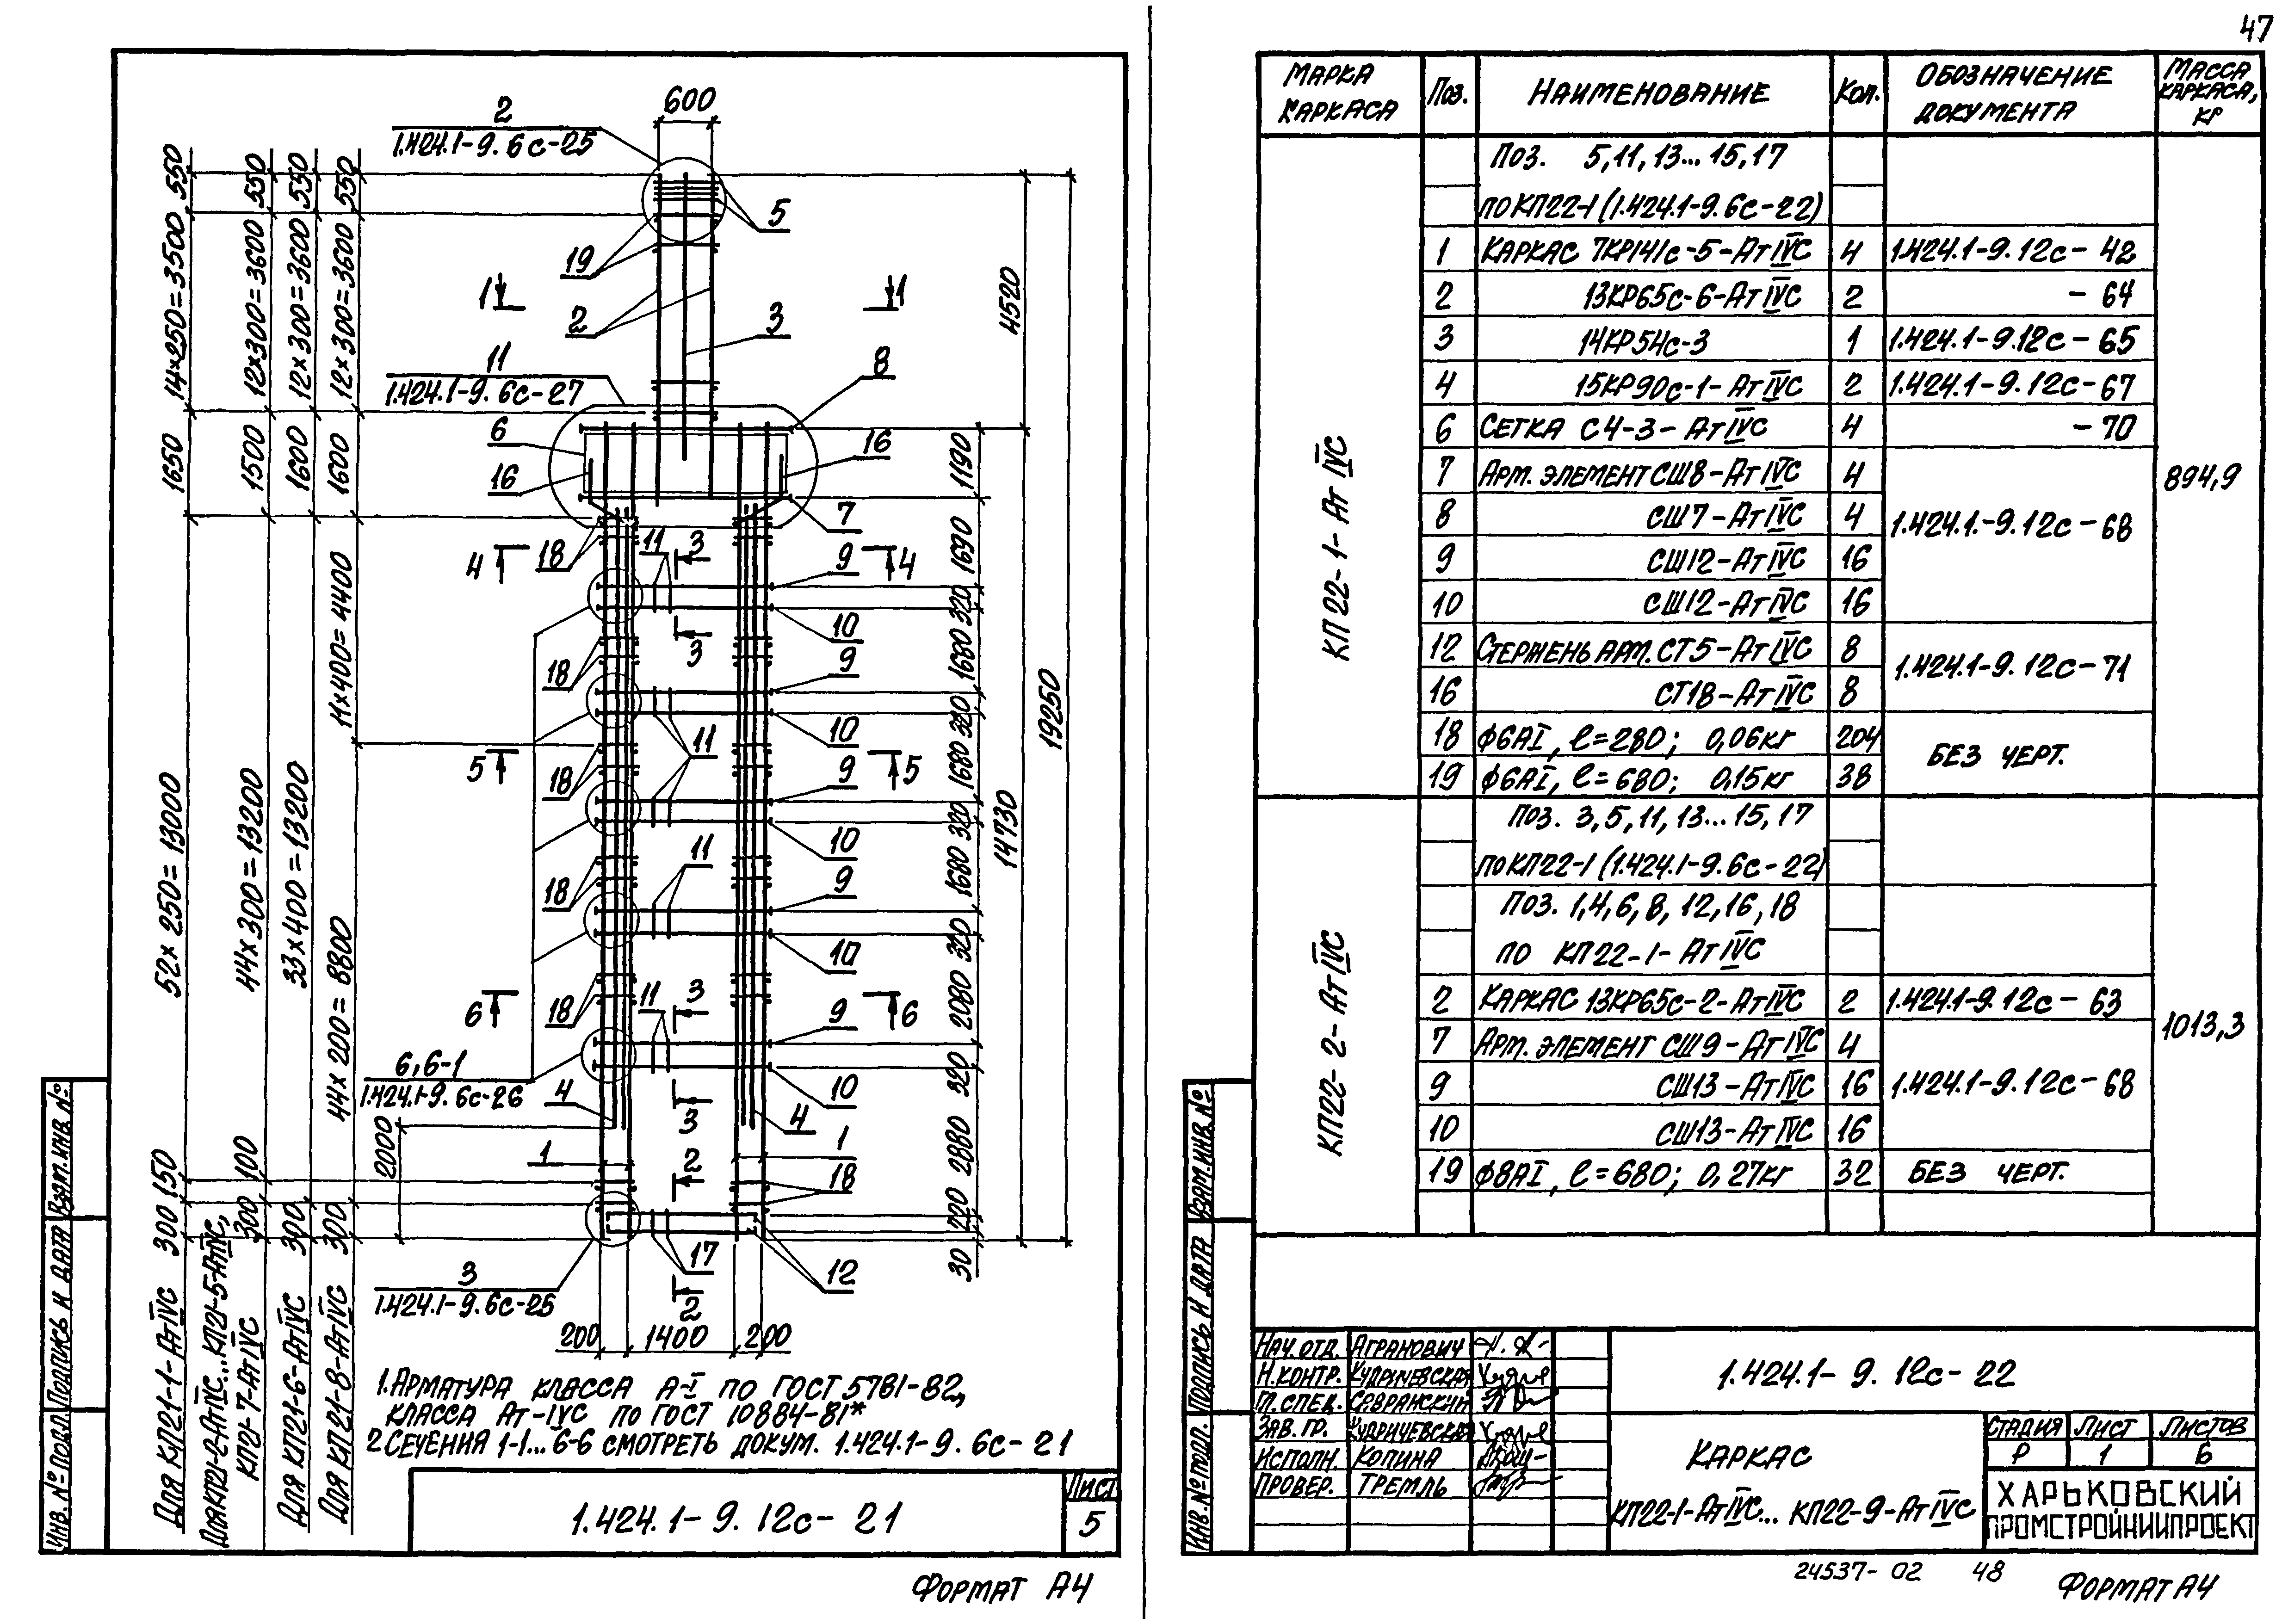 47
2
1.424.1-9.6с-25
600
5
19
1
1
2
3
11
1.424.1-9.6с-27
8
6
16
16
7
4
18
11
3
9
4
10
3
18
9
10
11
5
18
9
5
10
11
18
9
10
6
18
11
3
9
6
6,6-1
1.424.1-9.6с-26
10
4
3
4
1
1
2
18
17
12
3
1.424.1-9.6с-25
2
200
1400
200
550
14×250=3500
1650
52×250=13000
150
300
Для КП21-1-АтIVС
550
12×300=3600
1500
44×300=13200
100
300
Для КП21-2-АтIVС...КП21-5-АтIVС,
КП21-7-АтIVС
550
12×300=3600
1600
33×400=13200
300
Для КП21-6-АтIVС
550
12×300=3600
1600
11×400=4400
44×200=8800
300
Для КП21-8-АтIVС
2000
1190
1690
320
1680
320
1680
320
1680
320
2080
320
2880
220
30
4520
14730
19250
1. Арматура класса А-I по ГОСТ 5781-82,
класса Ат-IVС по ГОСТ 10884-81*
2. Сечения 1-1...6-6 смотреть докум. 1.424.1-9.6с-21
1.424.1-9.12с-21
Лист
5
Формат А4
Взам.инв.№
Подпись и дата
Инв.№ подл.
Марка каркаса
Поз.
Наименование
Кол.
Обозначение документа
Масса каркаса, кг
КП22-1-АтIVС
Поз. 5,11,13...15,17
по КП22-1 (1.424.1-9.6с-22)
1 Каркас 7КР141с-5-АтIVС 4 1.424.1-9.12с-42
2 13КР65с-6-АтIVС 2 -64
3 14КР54с-3 1 1.424.1-9.12с-65
4 15КР90с-1-АтIVС 2 1.424.1-9.12с-67
6 Сетка С4-3-АтIVС 4 -70
7 Арм. элемент СШ8-АтIVС 4
8 СШ7-АтIVС 4 1.424.1.-9.12с-68
9 СШ12-АтIVС 16
10 СШ12-АтIVС 16
12 Стержень арм. СТ5-АтIVС 8 1.424.1-9.12с-71
16 СТ18-АтIVС 8
18 ϕ6АI, ℓ=280; 0,06кг 204 Без черт.
19 ϕ6АI, ℓ=680; 0,15кг 38
894,9
КП22-2-АтIVС
Поз. 3,5,11,13...15,17
по КП22-1 (1.424.1-9.6с-22)
Поз. 1,4,6,8,12,16,18
по КП22-1-АтIVС
2 Каркас 13КР65с-2-АтIVС 2 1.424.1-9.12с-63
7 Арм. элемент СШ9-АтIVС 4
9 СШ13-АтIVС 16 1.424.1-9.12с-68
10 СШ13-АтIVС 16
19 ϕ8АI, ℓ=680; 0,27кг 32 Без черт.
1013,3
Взам.инв.№
Подпись и дата
Инв.№ подл.
Нач.отд. Агранович
Н.контр. Кудричевская
Гл.спец. Севранский
Зав.гр. Кудричевская
Исполн. Копина
Провер. Тремль
1.424.1-9.12с-22
Каркас
КП22-1-АтIVС... КП22-9-АтIVС
Стадия Лист Листов
Р 1 6
Харьковский
Промстройниипроект
24537-02 48
Формат А4